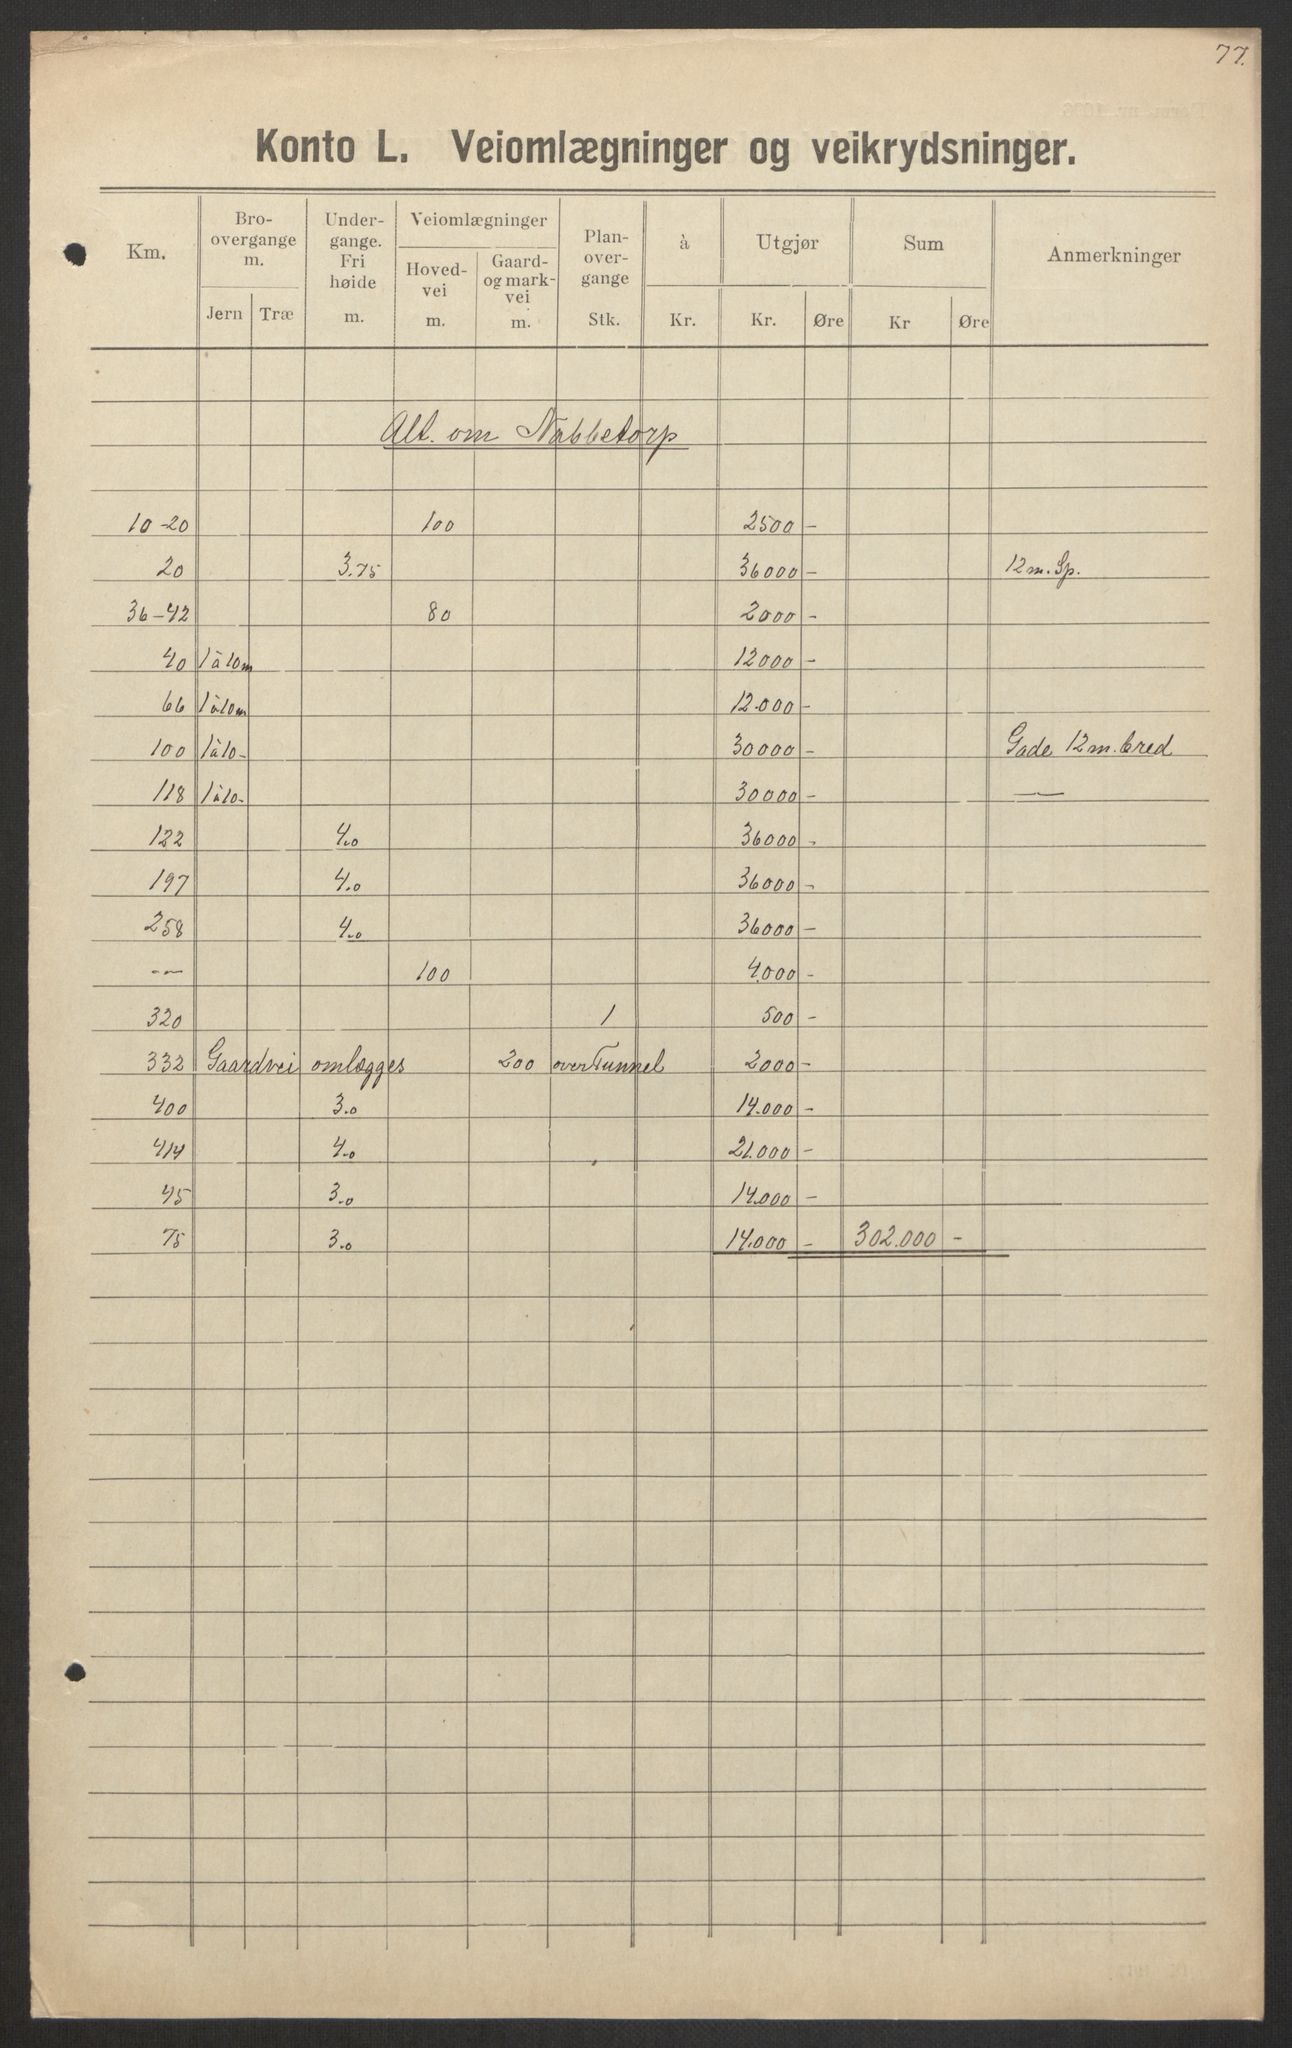 77.
Konto L. Veiomlægninger og veikrydsninger.
Km. Bro-overgange m. Jern Træ Under-gange. Fri høide m. Veiomlægninger Hoved-vei m. Gaard-og mark-vei m. Plan-over-gange Stk. à Kr. Utgjør Kr. Øre Sum Kr Øre Anmerkninger
Alt. om Nabbetorp
10-20 100 2500 -
20 3.75 36000 - 12m. Sp.
36-42 80 2000 -
40 1 à 10m 12000 -
66 1 à 10m 12.000 -
100 1 à 10- 30000 - Gade 12m. bred
118 1 à 10- 30000 - —
122 4.0 36000 -
197 4.0 36000 -
258 4.0 36000 -
-- 100 4.000 -
320 1 500 -
332 Gaardvei omlægges 200 over Tunnel 2000 -
400 3.0 14.000 -
414 4.0 21.000 -
45 3.0 14.000 -
75 3.0 14.000 - 302.000 -